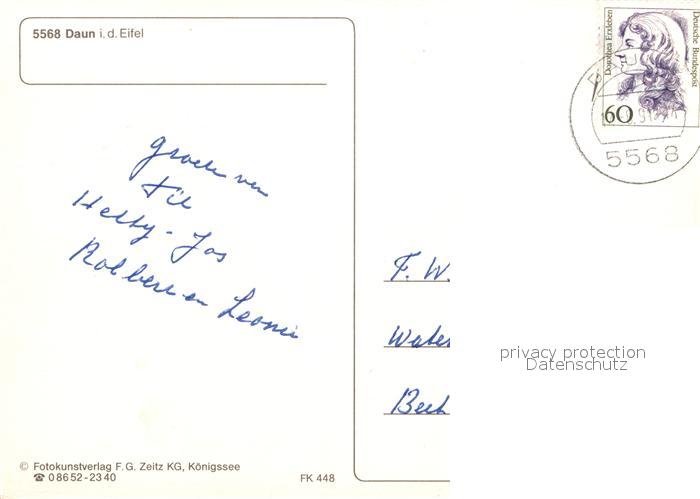 5568 Daun i. d. Eifel
Dorothea Erxleben
Deutsche Bundespost
60
5568
Groeten van
Hetty - Jos
Robbert en Leonie
F. W.
Water
privacy protection
Datenschutz
© Fotokunstverlag F. G. Zeitz KG, Königssee
☎ 0 86 52 - 23 40
FK 448